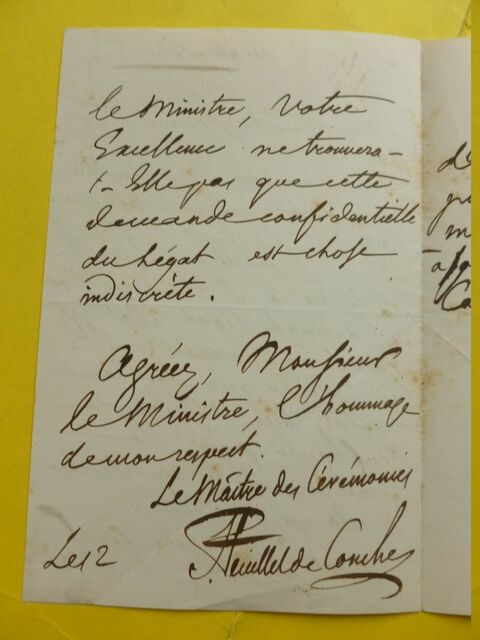 le Ministre, Votre
Excellence ne trouvera-
t-Elle pas que cette
demande confidentielle
du Légat est chose
indiscrète.
Agréez, Monsieur
le Ministre, l'hommage
de mon respect.
Le Maître des Cérémonies
F. Feuillet de Conches
Le 12